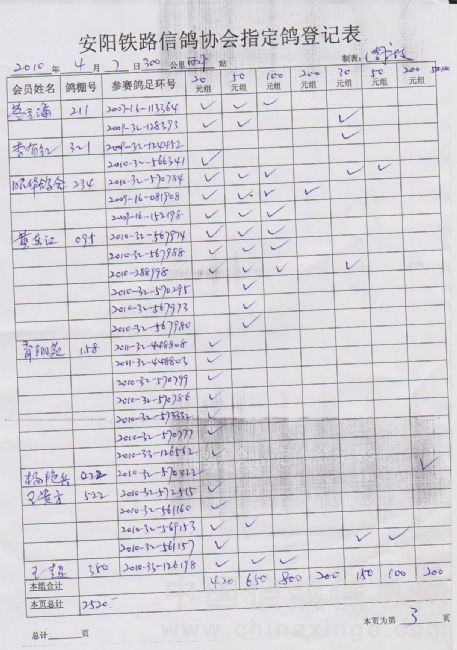 安阳铁路信鸽协会指定鸽登记表
2010 年 4 月 7 日 300 公里 站 制表:
会员姓名 鸽棚号 参赛鸽足环号 20元组 50元组 100元组 200元组 30元组 50元组 200元组
211 2009-16-113364 ✓ ✓ ✓
2009-32-128393 ✓ ✓ ✓
321 2009-32-124452 ✓
2010-32-566341 ✓
234 2010-32-590784 ✓ ✓ ✓ ✓ ✓
2009-16-081908 ✓ ✓ ✓ ✓
2009-16-152198 ✓ ✓ ✓
黄东江 095 2010-32-567974 ✓ ✓ ✓
2010-32-567988 ✓ ✓ ✓
2010-288998 ✓ ✓ ✓ ✓
2010-32-570295 ✓
2010-32-567973 ✓
2010-32-567980 ✓
158 2011-32-448808 ✓
2011-32-448803 ✓
2010-32-570799 ✓
2010-32-570786 ✓
2010-32-573332 ✓
2010-32-570777 ✓
2010-33-126562 ✓
022 2010-32-570822 ✓
王贵方 522 2010-32-572515 ✓
2010-32-561160 ✓
2010-32-569153 ✓ ✓
2010-32-561157 ✓ ✓ ✓
王超 380 2010-33-126198 ✓ ✓ ✓
本组合计 420 650 800 200 150 100 200
本页总计 2520.-
总计 页 本页为第 3 页
www.chinaxinge.com